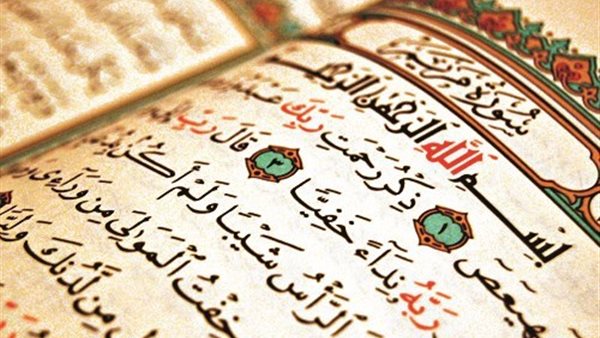 سُورَةُ مَرْيَمَ
بِسْمِ اللَّهِ الرَّحْمَٰنِ الرَّحِيمِ
١ ذِكْرُ رَحْمَتِ رَبِّكَ
رَبَّهُ نِدَآءً خَفِيًّا ٣ قَالَ رَبِّ
الرَّأْسُ شَيْبًا وَلَمْ أَكُن
خِفْتُ الْمَوَٰلِيَ مِن وَرَآءِى
مِن لَّدُنكَ